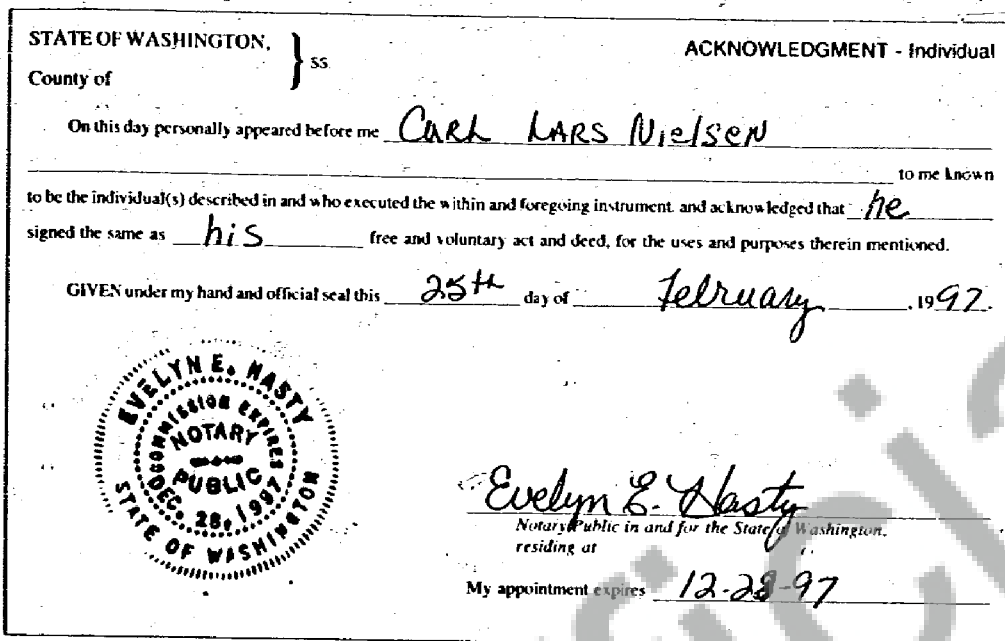 STATE OF WASHINGTON,
County of
ss.
ACKNOWLEDGMENT - Individual
On this day personally appeared before me Carl Lars Nielsen
to me known
to be the individual(s) described in and who executed the within and foregoing instrument. and acknowledged that he
signed the same as his free and voluntary act and deed, for the uses and purposes therein mentioned.
GIVEN under my hand and official seal this 25th day of February, 1997.
EVELYN E. HASTY
COMMISSION EXPIRES
NOTARY
PUBLIC
DEC. 28, 1997
STATE OF WASHINGTON
Evelyn E. Hasty
Notary Public in and for the State of Washington,
residing at
My appointment expires 12-28-97